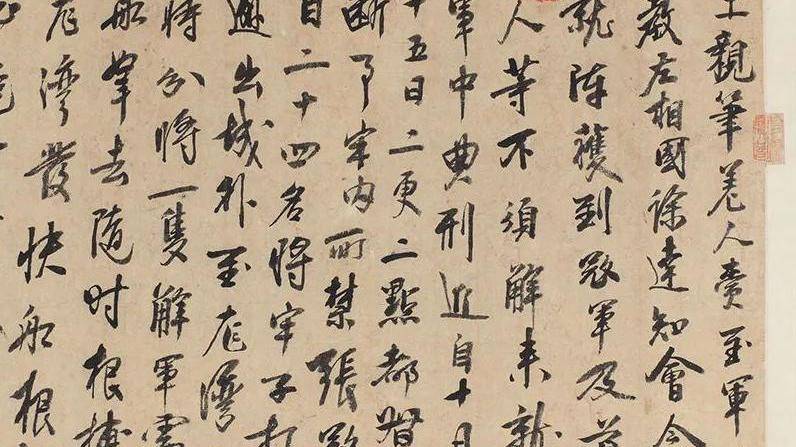 上親筆差人賫至軍
教左相國徐達知會今
就陣獲到寇軍及首
人等不須解来就
軍中典刑近自十月
十五日二更二點都督
斷了牢内所禁張寇
日二十四名將牢子打
出城外至龙灣
時分將一隻解軍需
船拏去随时根捕
龙灣發快船根